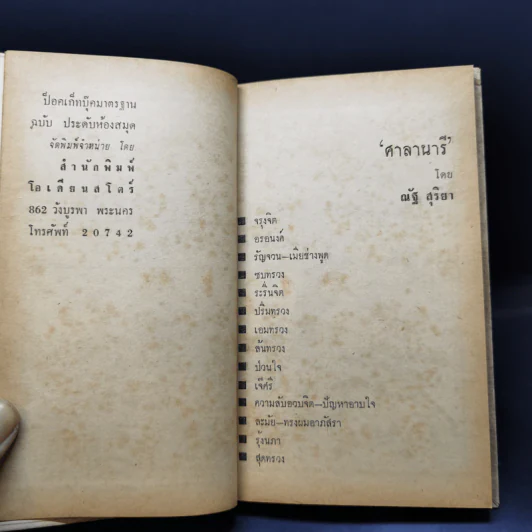 ป็อคเก็ทบุ๊คมาตรฐาน
ฉบับ ประดับห้องสมุด
จัดพิมพ์จำหน่าย โดย
สำนักพิมพ์
โอเดียนสโตร์
862 วังบูรพา พระนคร
โทรศัพท์ 20742
'ศาลานารี'
โดย
ณัฐ สุริยา
จรุงจิต
อรอนงค์
รัญจวน—เมียช่างพูด
ซบทรวง
ระรื่นจิต
ปริ่มทรวง
เอมทรวง
ล้นทรวง
ป่วนใจ
เจ๊ศรี
ความลับอวบจิต—ปัญหาอาบใจ
ละมัย—ทรงผมอาภัสรา
รุ้งนภา
สุดทรวง